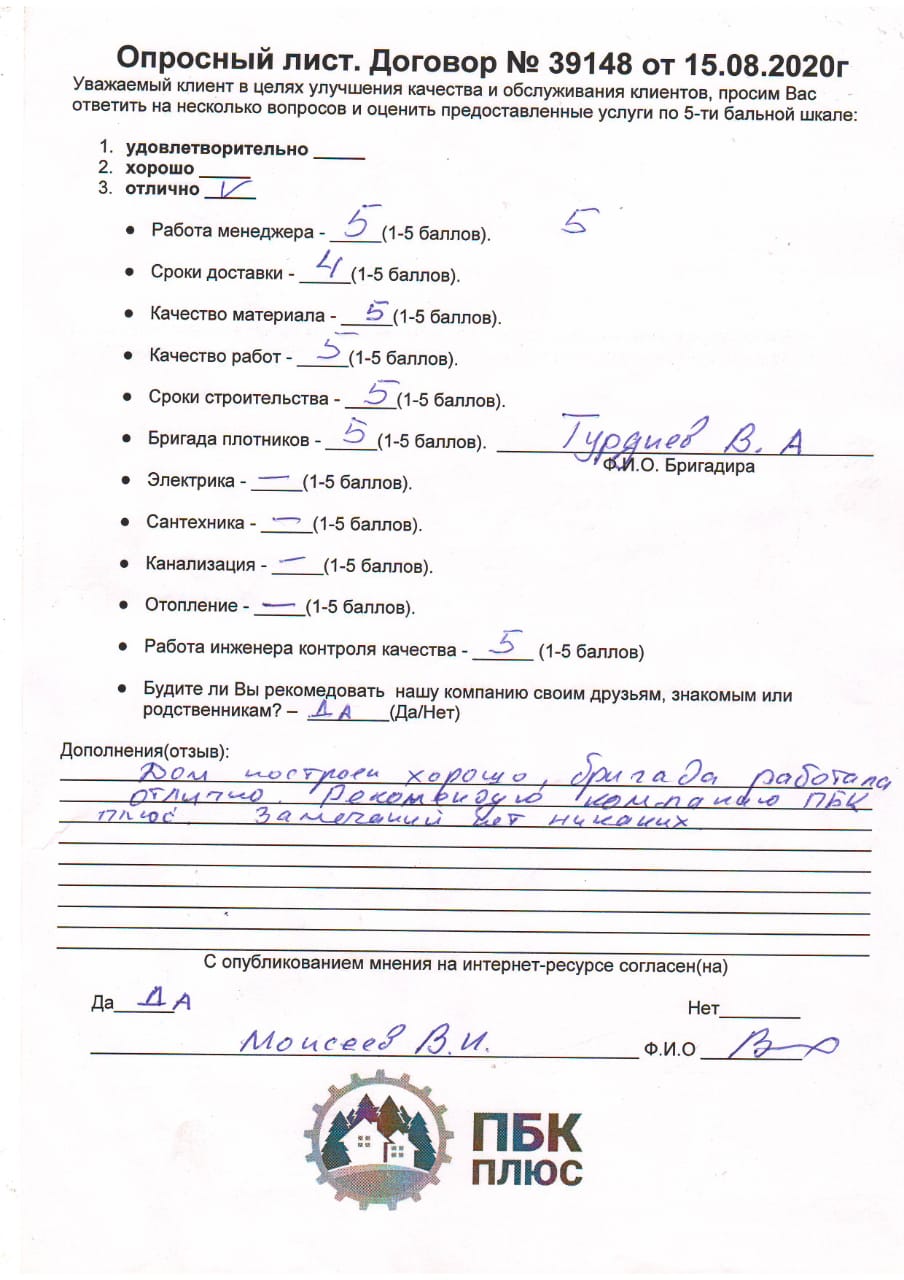 Опросный лист. Договор № 39148 от 15.08.2020г
Уважаемый клиент в целях улучшения качества и обслуживания клиентов, просим Вас
ответить на несколько вопросов и оценить предоставленные услуги по 5-ти бальной шкале:
1. удовлетворительно _____
2. хорошо _____
3. отлично V
• Работа менеджера - 5 (1-5 баллов). 5
• Сроки доставки - 4 (1-5 баллов).
• Качество материала - 5 (1-5 баллов).
• Качество работ - 5 (1-5 баллов).
• Сроки строительства - 5 (1-5 баллов).
• Бригада плотников - 5 (1-5 баллов). Турдиев В. А
Ф.И.О. Бригадира
• Электрика - — (1-5 баллов).
• Сантехника - — (1-5 баллов).
• Канализация - — (1-5 баллов).
• Отопление - — (1-5 баллов).
• Работа инженера контроля качества - 5 (1-5 баллов)
• Будите ли Вы рекомедовать нашу компанию своим друзьям, знакомым или
родственникам? – ДА (Да/Нет)
Дополнения(отзыв):
Дом построен хорошо, бригада работала
отлично. Рекомендую компанию ПБК
плюс. Замечаний нет никаких
С опубликованием мнения на интернет-ресурсе согласен(на)
Да ДА Нет________
Моисеев В.И. Ф.И.О
ПБК
ПЛЮС